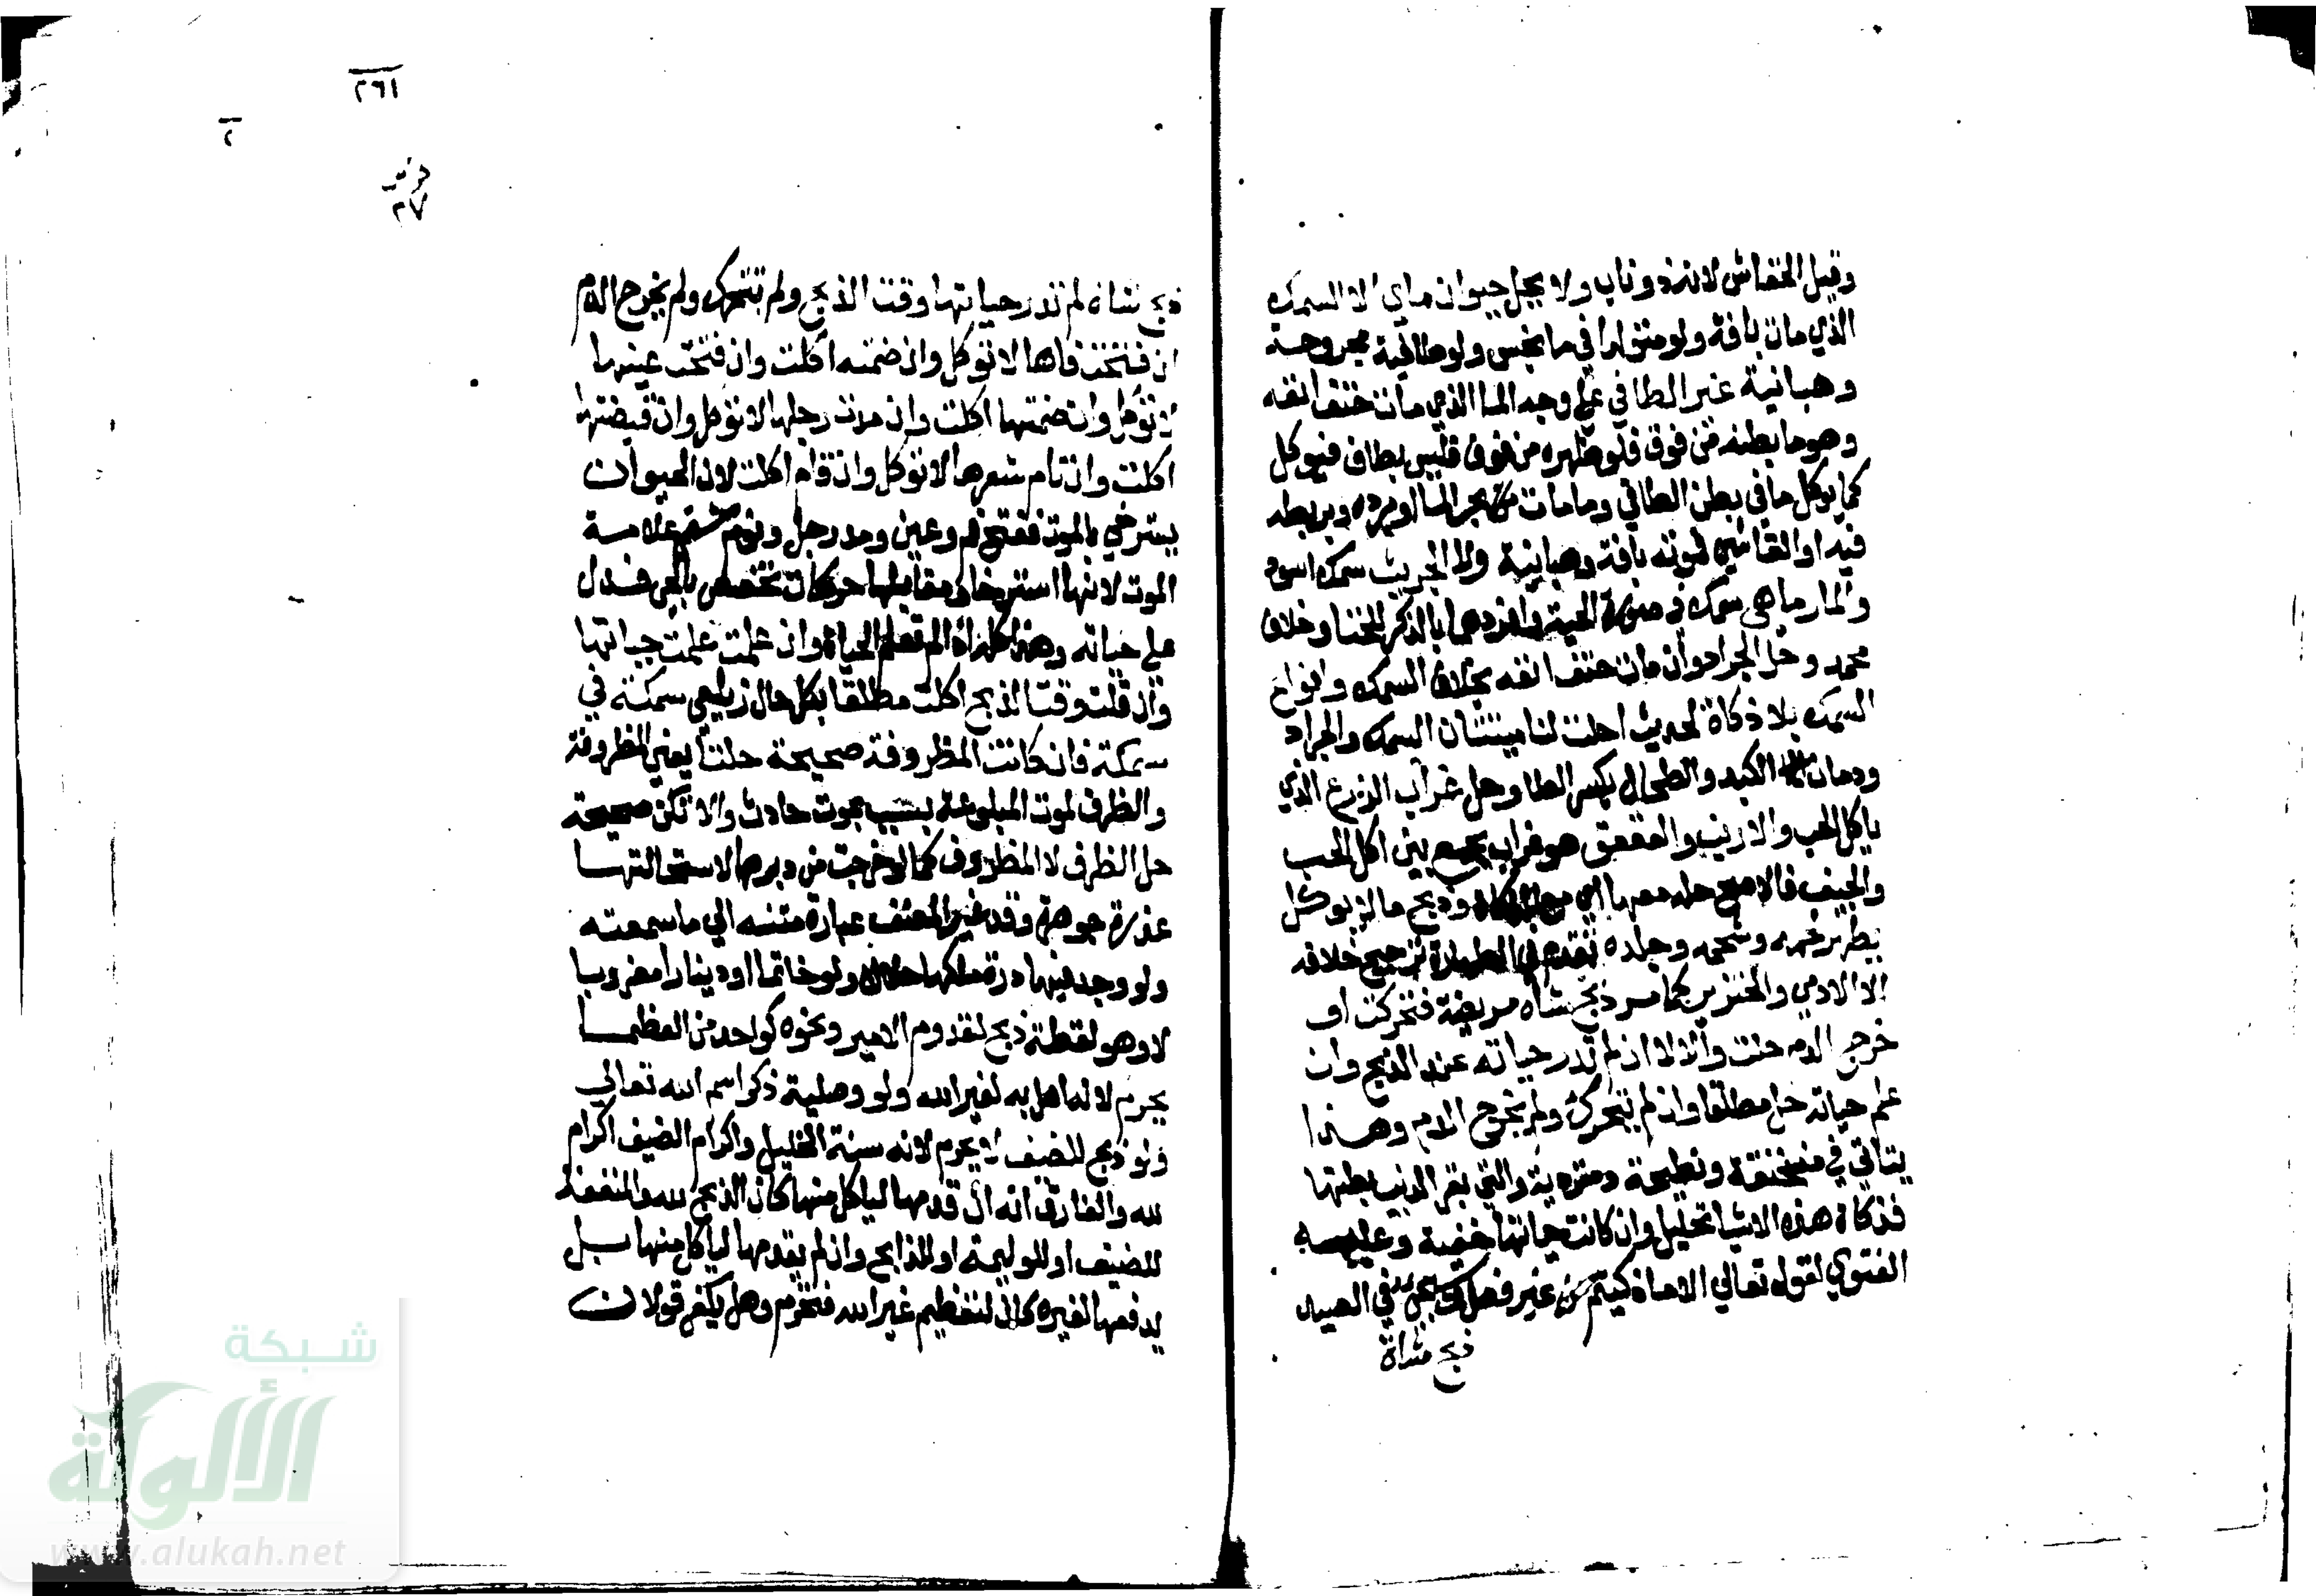 وقيل الخفاش لانه ذو ناب ولا يحل حيوان مائي الا السمك
الذي مات بافة ولو متولدا في ما نجس ولو طافية مجروحة
وهبانية غير الطافي علي وجه الما الذي مات حتف انفه
وهو ما بطنه من فوق فلو ظهره من فوق فليس بطاف فيوكل
كما يوكل ما في بطن الطافي وما مات من بحر الما او برده وبربطه
فيه او القا شي فموته بافة وهبانية ولا الجريث سمك اسود
والمارماهي سمك في صورة الحية وافردهما بالذكر للخفا وخلاف
محمد وحل الجراد وان مات حتف انفه بخلاف السمك وانواع
السمك بلا ذكاة لحديث احلت لنا ميتتان السمك والجراد
ودمان الكبد والطحال بكسر الطا وحل غراب الزرع الذي
ياكل الحب والارنب والعقعق هو غراب يجمع بين اكل الحب
والجيف فالاصح حله معها اي مع الذكاة وذبح ما لا يوكل
يطهر لحمه وشحمه وجلده تقدم في الطهارة ترجيح خلافه
الا الادمي والخنزير كما مر ذبح شاه مريضة فتحركت او
خرج الدم حلت والا لا ان لم تدر حياته عند الذبح وان
علم حياته حل مطلقا وان لم يتحرك ولم يخرج الدم وهذا
يتاتي في منخنقة ونطيحة ومتردية والتي بقر الذيب بطنها
فذكاة هذه الاشيا تحليل وان كانت حياتها خفيفة وعليه
الفتوي لقوله تعالي الا ما ذكيتم من غير فصل وسيجي في الصيد
ذبح شاة
٢٦١
٢
٢٧
ذبح شاة لم تدر حياتها وقت الذبح ولم تتحرك ولم يخرج الدم
ان فتحت فاها لا توكل وان ضمته اكلت وان فتحت عينها
لا توكل وان ضمتها اكلت وان مدت رجلها لا توكل وان قبضتها
اكلت وان نام شعرها لا توكل وان قام اكلت لان الحيوان
يسترخي بالموت ففتح فم وعين ومد رجل ونوم شعر علامة
الموت لانها استرخا ومقابلها حركات تختص بالحي فدل
علي حياته وهذا كله اذا لم تعلم الحياة وان علمت علمت حياتها
وان قلت وقت الذبح اكلت مطلقا بكل حال زيلعي سمكة في
سمكة فان كانت المظروفة صحيحة حلتا يعني المظروفة
والظرف لموت المبلوعة بسبب موت حادث والا تكن صحيحة
حل الظرف لا المظروف كما لو خرجت من دبرها لاستحالتها
عذرة جوهرة وقد غير المصنف عبارة متنه الي ما سمعته
ولو وجد فيها درة ملكها حلالا ولو خاتما او دينارا مضروبا
لا وهو لقطة ذبح لقدوم الامير ونحوه كواحد من العظما
يحرم لانه اهل به لغير الله ولو وصلية ذكر اسم الله تعالي
ولو ذبح للضيف لا يحرم لانه سنة الخليل واكرام الضيف اكرام
لله والفارق انه ان قدمها لياكل منها كان الذبح لله والمنفعة
للضيف او للوليمة او للذابح وان لم يقدمها لياكل منها بل
يدفعها لغيره كان لتعظيم غير الله فتحرم وهل يكفر قولان
شبكة
الألوكة
www.alukah.net